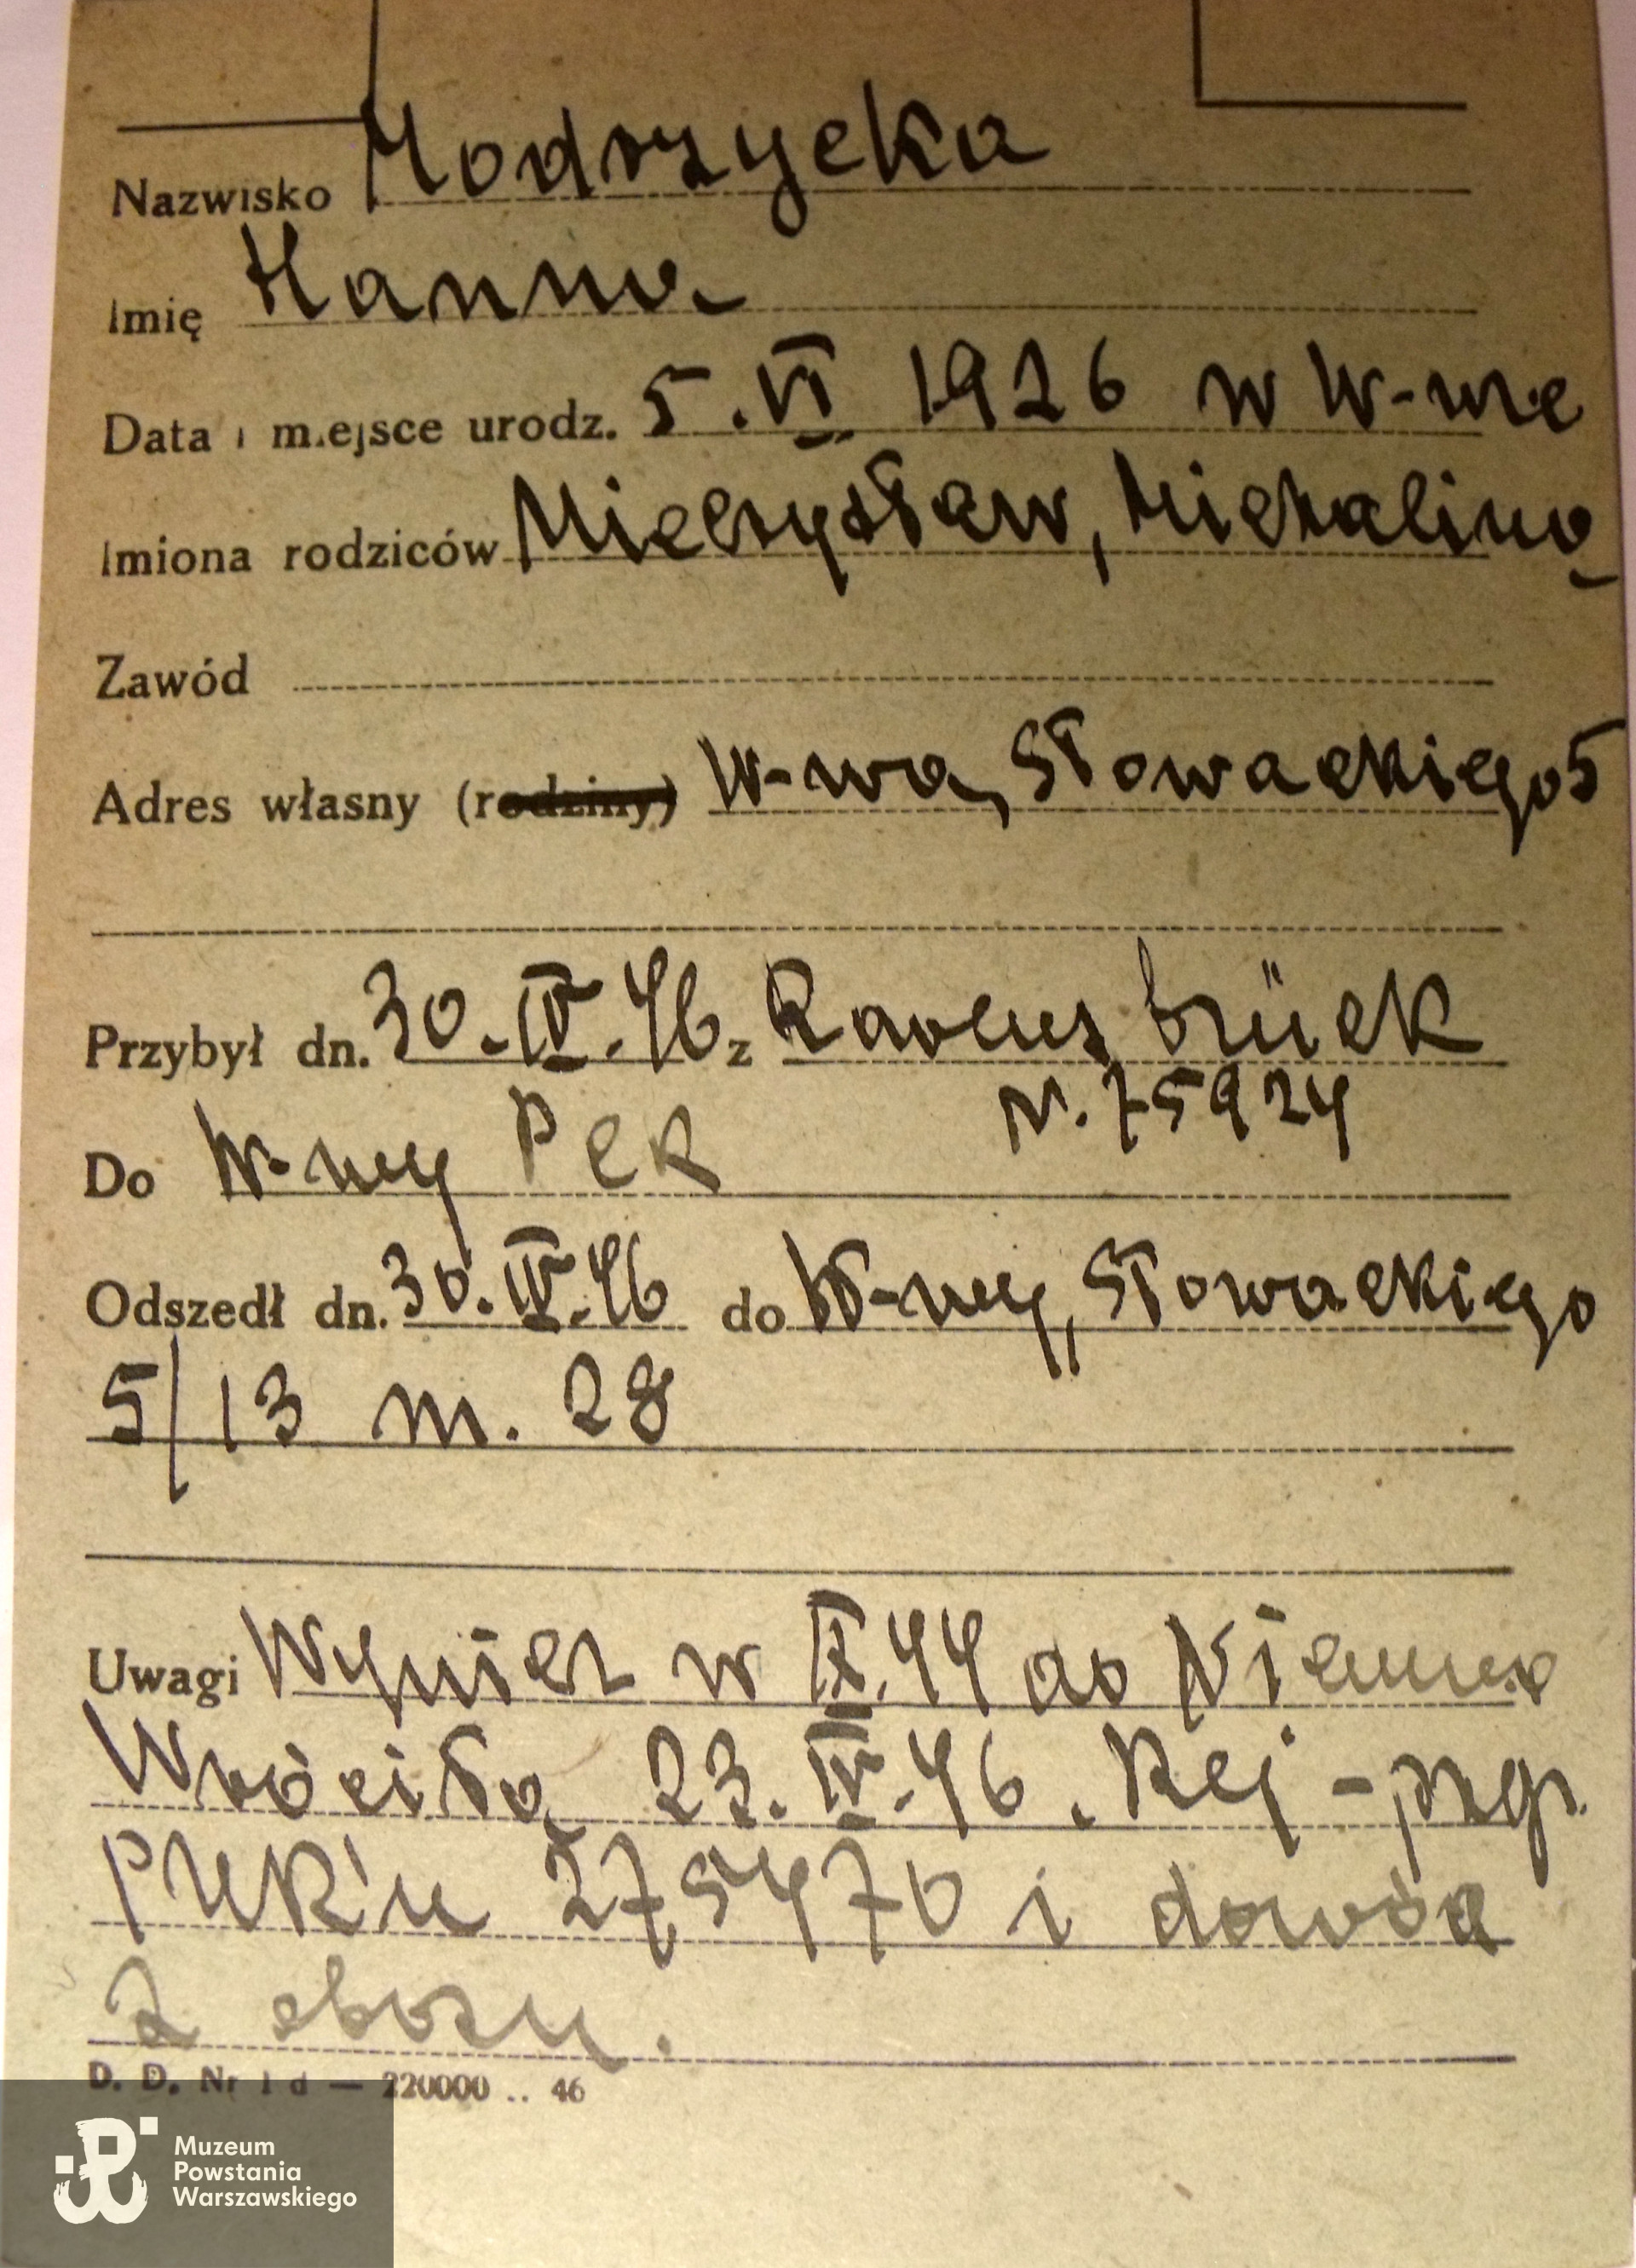 Nazwisko Modrzycka
Imię Hanna
Data i miejsce urodz. 5.VI 1926 w W-wie
Imiona rodziców Mieczysław, Michalina
Zawód
Adres własny (rodziny) W-wa, Słowackiego 5
Przybył dn. 30.IV.46 z Ravensbrück
N. 75924
Do W-wy PCK
Odszedł dn. 30.IV.46 do W-wy, Słowackiego
5/13 m. 28
Uwagi Wywiez w IX.44 do Niemiec
Wróciła 23.IV.46. Rej-
PUR'u 275470 i dowód
z obozu.
D. D. Nr 1 d — 220000 .. 46
Muzeum
Powstania
Warszawskiego